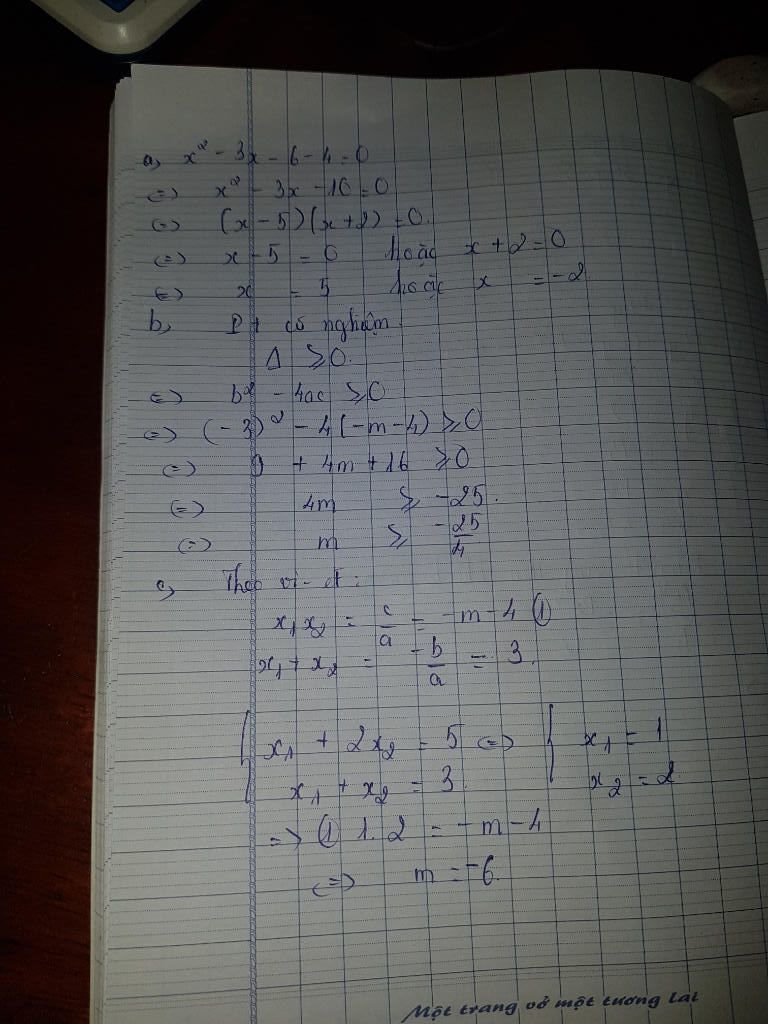 a, x² - 3x - 6 - 4 = 0
<=> x² - 3x - 10 = 0
<=> (x - 5)(x + 2) = 0.
<=> x - 5 = 0 hoặc x + 2 = 0
<=> x = 5 hoặc x = -2
b, Pt có nghiệm.
Δ ≥ 0.
<=> b² - 4ac ≥ 0
<=> (-3)² - 4(-m - 4) ≥ 0
<=> 9 + 4m + 16 ≥ 0
<=> 4m ≥ -25.
<=> m ≥ -25/4
c, Theo vi-ét :
x₁x₂ = c/a = -m - 4 ①
x₁ + x₂ = -b/a = 3.
{ x₁ + 2x₂ = 5 <=> { x₁ = 1
x₁ + x₂ = 3. x₂ = 2
=> ① 1.2 = -m - 4
<=> m = -6.
Một trang vở một tương lai